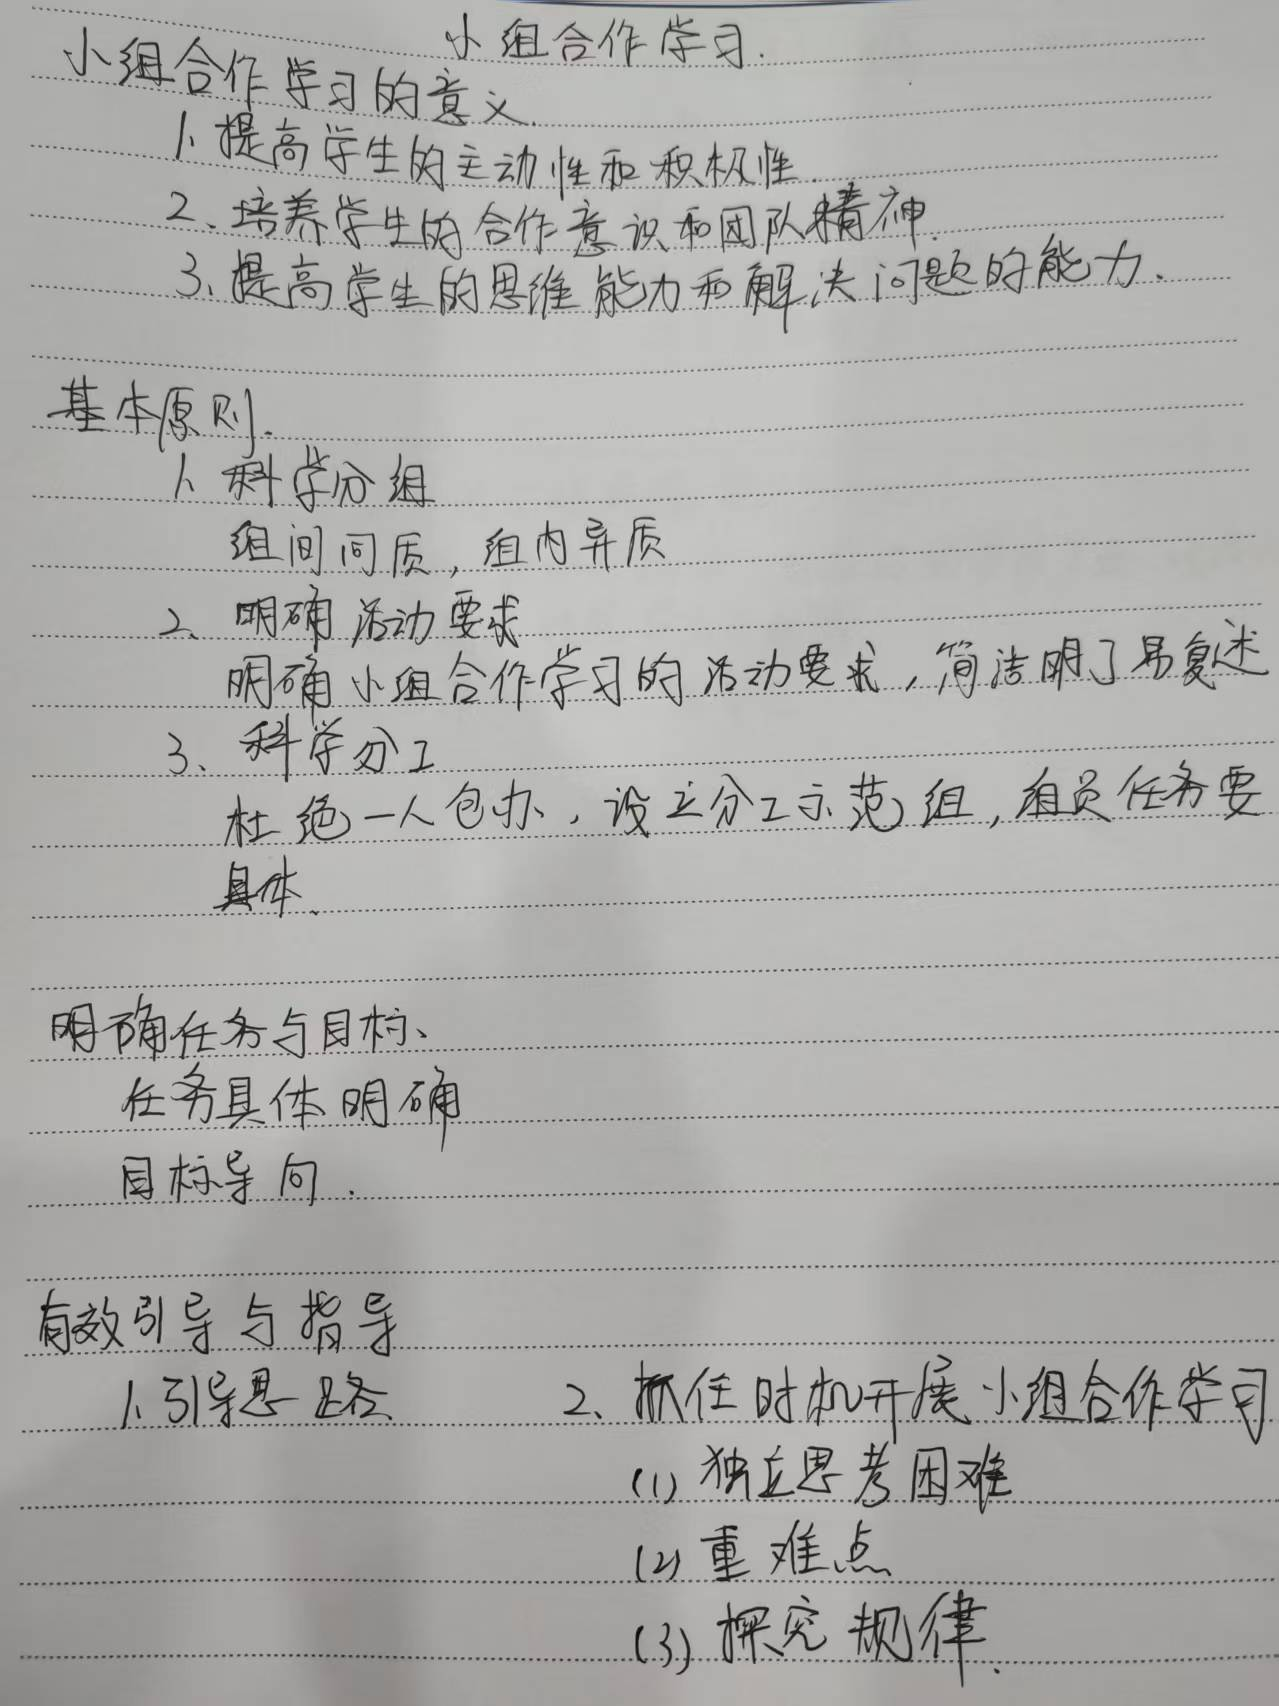 小组合作学习.
小组合作学习的意义.
1、提高学生的主动性和积极性.
2、培养学生的合作意识和团队精神.
3、提高学生的思维能力和解决问题的能力.
基本原则.
1、科学分组
组间同质，组内异质
2、明确活动要求
明确小组合作学习的活动要求，简洁明了易复述
3、科学分工
杜绝一人包办，设立分工示范组，组员任务要
具体、
明确任务与目标、
任务具体明确
目标导向.
有效引导与指导
1、引导思路
2、抓住时机开展小组合作学习
(1) 独立思考困难
(2) 重难点
(3) 探究规律.